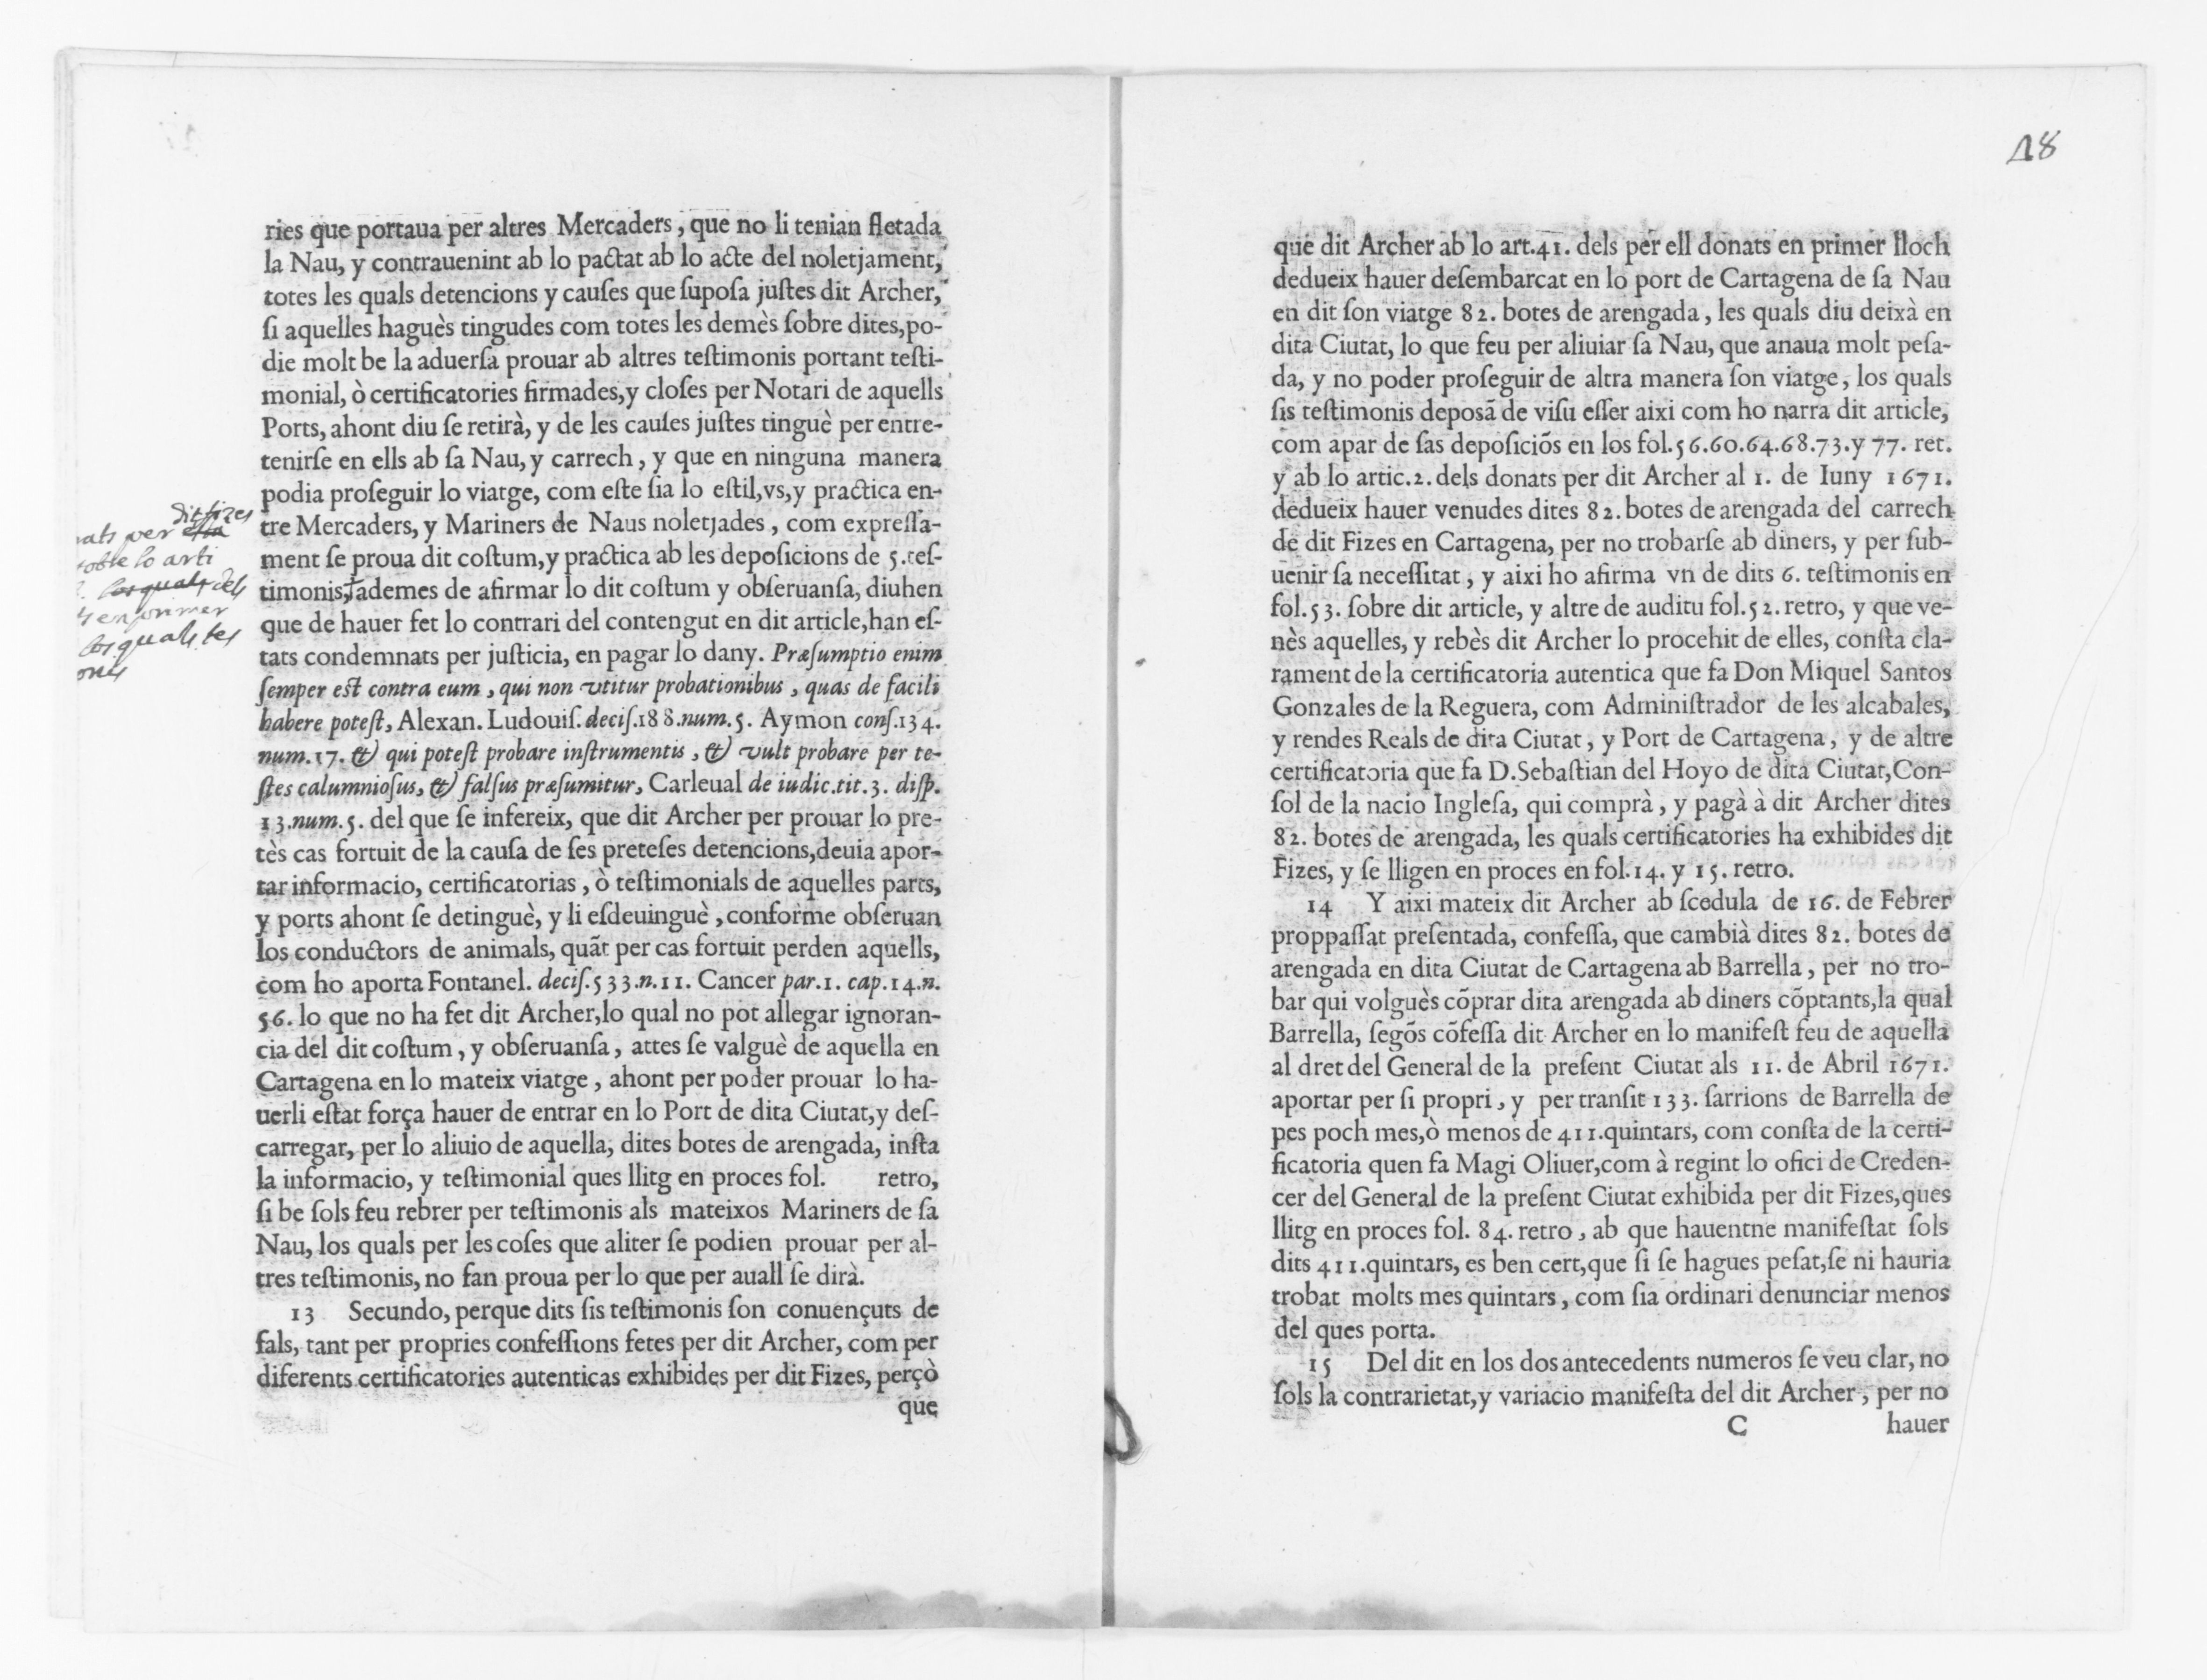 ries que portaua per altres Mercaders, que no li tenian fletada
la Nau, y contrauenint ab lo pactat ab lo acte del noletjament,
totes les quals detencions y cauſes que ſupoſa juſtes dit Archer,
ſi aquelles haguès tingudes com totes les demès ſobre dites, po-
die molt be la aduerſa prouar ab altres teſtimonis portant teſti-
monial, ò certificatories firmades, y cloſes per Notari de aquells
Ports, ahont diu ſe retirà, y de les cauſes juſtes tinguè per entre-
tenirſe en ells ab ſa Nau, y carrech, y que en ninguna manera
podia proſeguir lo viatge, com eſte ſia lo eſtil, vs, y practica en-
tre Mercaders, y Mariners de Naus noletjades, com expreſſa-
ment ſe proua dit coſtum, y practica ab les depoſicions de 5. teſ-
timonis, + ademes de afirmar lo dit coſtum y obſeruanſa, diuhen
que de hauer fet lo contrari del contengut en dit article, han eſ-
tats condemnats per juſticia, en pagar lo dany. Præſumptio enim
ſemper eſt contra eum, qui non vtitur probationibus, quas de facili
habere poteſt, Alexan. Ludouiſ. deciſ. 188. num. 5. Aymon conſ. 134.
num. 17. & qui poteſt probare inſtrumentis, & vult probare per te-
ſtes calumnioſus, & falſus præſumitur, Carleual de iudic. tit. 3. diſp.
13. num. 5. del que ſe infereix, que dit Archer per prouar lo pre-
tès cas fortuit de la cauſa de ſes preteſes detencions, deuia apor-
tar informacio, certificatorias, ò teſtimonials de aquelles parts,
y ports ahont ſe detinguè, y li eſdeuinguè, conforme obſeruan
los conductors de animals, quãt per cas fortuit perden aquells,
com ho aporta Fontanel. deciſ. 533. n. 11. Cancer par. 1. cap. 14. n.
56. lo que no ha fet dit Archer, lo qual no pot allegar ignoran-
cia del dit coſtum, y obſeruanſa, attes ſe valguè de aquella en
Cartagena en lo mateix viatge, ahont per poder prouar lo ha-
uerli eſtat força hauer de entrar en lo Port de dita Ciutat, y deſ-
carregar, per lo aliuio de aquella, dites botes de arengada, inſta
la informacio, y teſtimonial ques llitg en proces fol. retro,
ſi be ſols feu rebrer per teſtimonis als mateixos Mariners de ſa
Nau, los quals per les coſes que aliter ſe podien prouar per al-
tres teſtimonis, no fan proua per lo que per auall ſe dirà.
13 Secundo, perque dits ſis teſtimonis ſon conuençuts de
fals, tant per propries confeſſions fetes per dit Archer, com per
diferents certificatories autenticas exhibides per dit Fizes, perçò
que
dit fizes
per
lo arti
los quals dels
en primer
los quals tes
48
que dit Archer ab lo art. 41. dels per ell donats en primer lloch
dedueix hauer deſembarcat en lo port de Cartagena de ſa Nau
en dit ſon viatge 82. botes de arengada, les quals diu deixà en
dita Ciutat, lo que feu per aliuiar ſa Nau, que anaua molt peſa-
da, y no poder proſeguir de altra manera ſon viatge, los quals
ſis teſtimonis depoſã de viſu eſſer aixi com ho narra dit article,
com apar de ſas depoſiciõs en los fol. 56. 60. 64. 68. 73. y 77. ret.
y ab lo artic. 2. dels donats per dit Archer al 1. de Iuny 1671.
dedueix hauer venudes dites 82. botes de arengada del carrech
de dit Fizes en Cartagena, per no trobarſe ab diners, y per ſub-
uenir ſa neceſſitat, y aixi ho afirma vn de dits 6. teſtimonis en
fol. 53. ſobre dit article, y altre de auditu fol. 52. retro, y que ve-
nès aquelles, y rebès dit Archer lo procehit de elles, conſta cla-
rament de la certificatoria autentica que fa Don Miquel Santos
Gonzales de la Reguera, com Adminiſtrador de les alcabales,
y rendes Reals de dita Ciutat, y Port de Cartagena, y de altre
certificatoria que fa D. Sebaſtian del Hoyo de dita Ciutat, Con-
ſol de la nacio Ingleſa, qui comprà, y pagà à dit Archer dites
82. botes de arengada, les quals certificatories ha exhibides dit
Fizes, y ſe lligen en proces en fol. 14. y 15. retro.
14 Y aixi mateix dit Archer ab ſcedula de 16. de Febrer
proppaſſat preſentada, confeſſa, que cambià dites 82. botes de
arengada en dita Ciutat de Cartagena ab Barrella, per no tro-
bar qui volguès cõprar dita arengada ab diners cõptants, la qual
Barrella, ſegõs cõfeſſa dit Archer en lo manifeſt feu de aquella
al dret del General de la preſent Ciutat als 11. de Abril 1671.
aportar per ſi propri, y per tranſit 133. ſarrions de Barrella de
pes poch mes, ò menos de 411. quintars, com conſta de la certi-
ficatoria quen fa Magi Oliuer, com à regint lo ofici de Creden-
cer del General de la preſent Ciutat exhibida per dit Fizes, ques
llitg en proces fol. 84. retro, ab que hauentne manifeſtat ſols
dits 411. quintars, es ben cert, que ſi ſe hagues peſat, ſe ni hauria
trobat molts mes quintars, com ſia ordinari denunciar menos
del ques porta.
15 Del dit en los dos antecedents numeros ſe veu clar, no
ſols la contrarietat, y variacio manifeſta del dit Archer, per no
C hauer